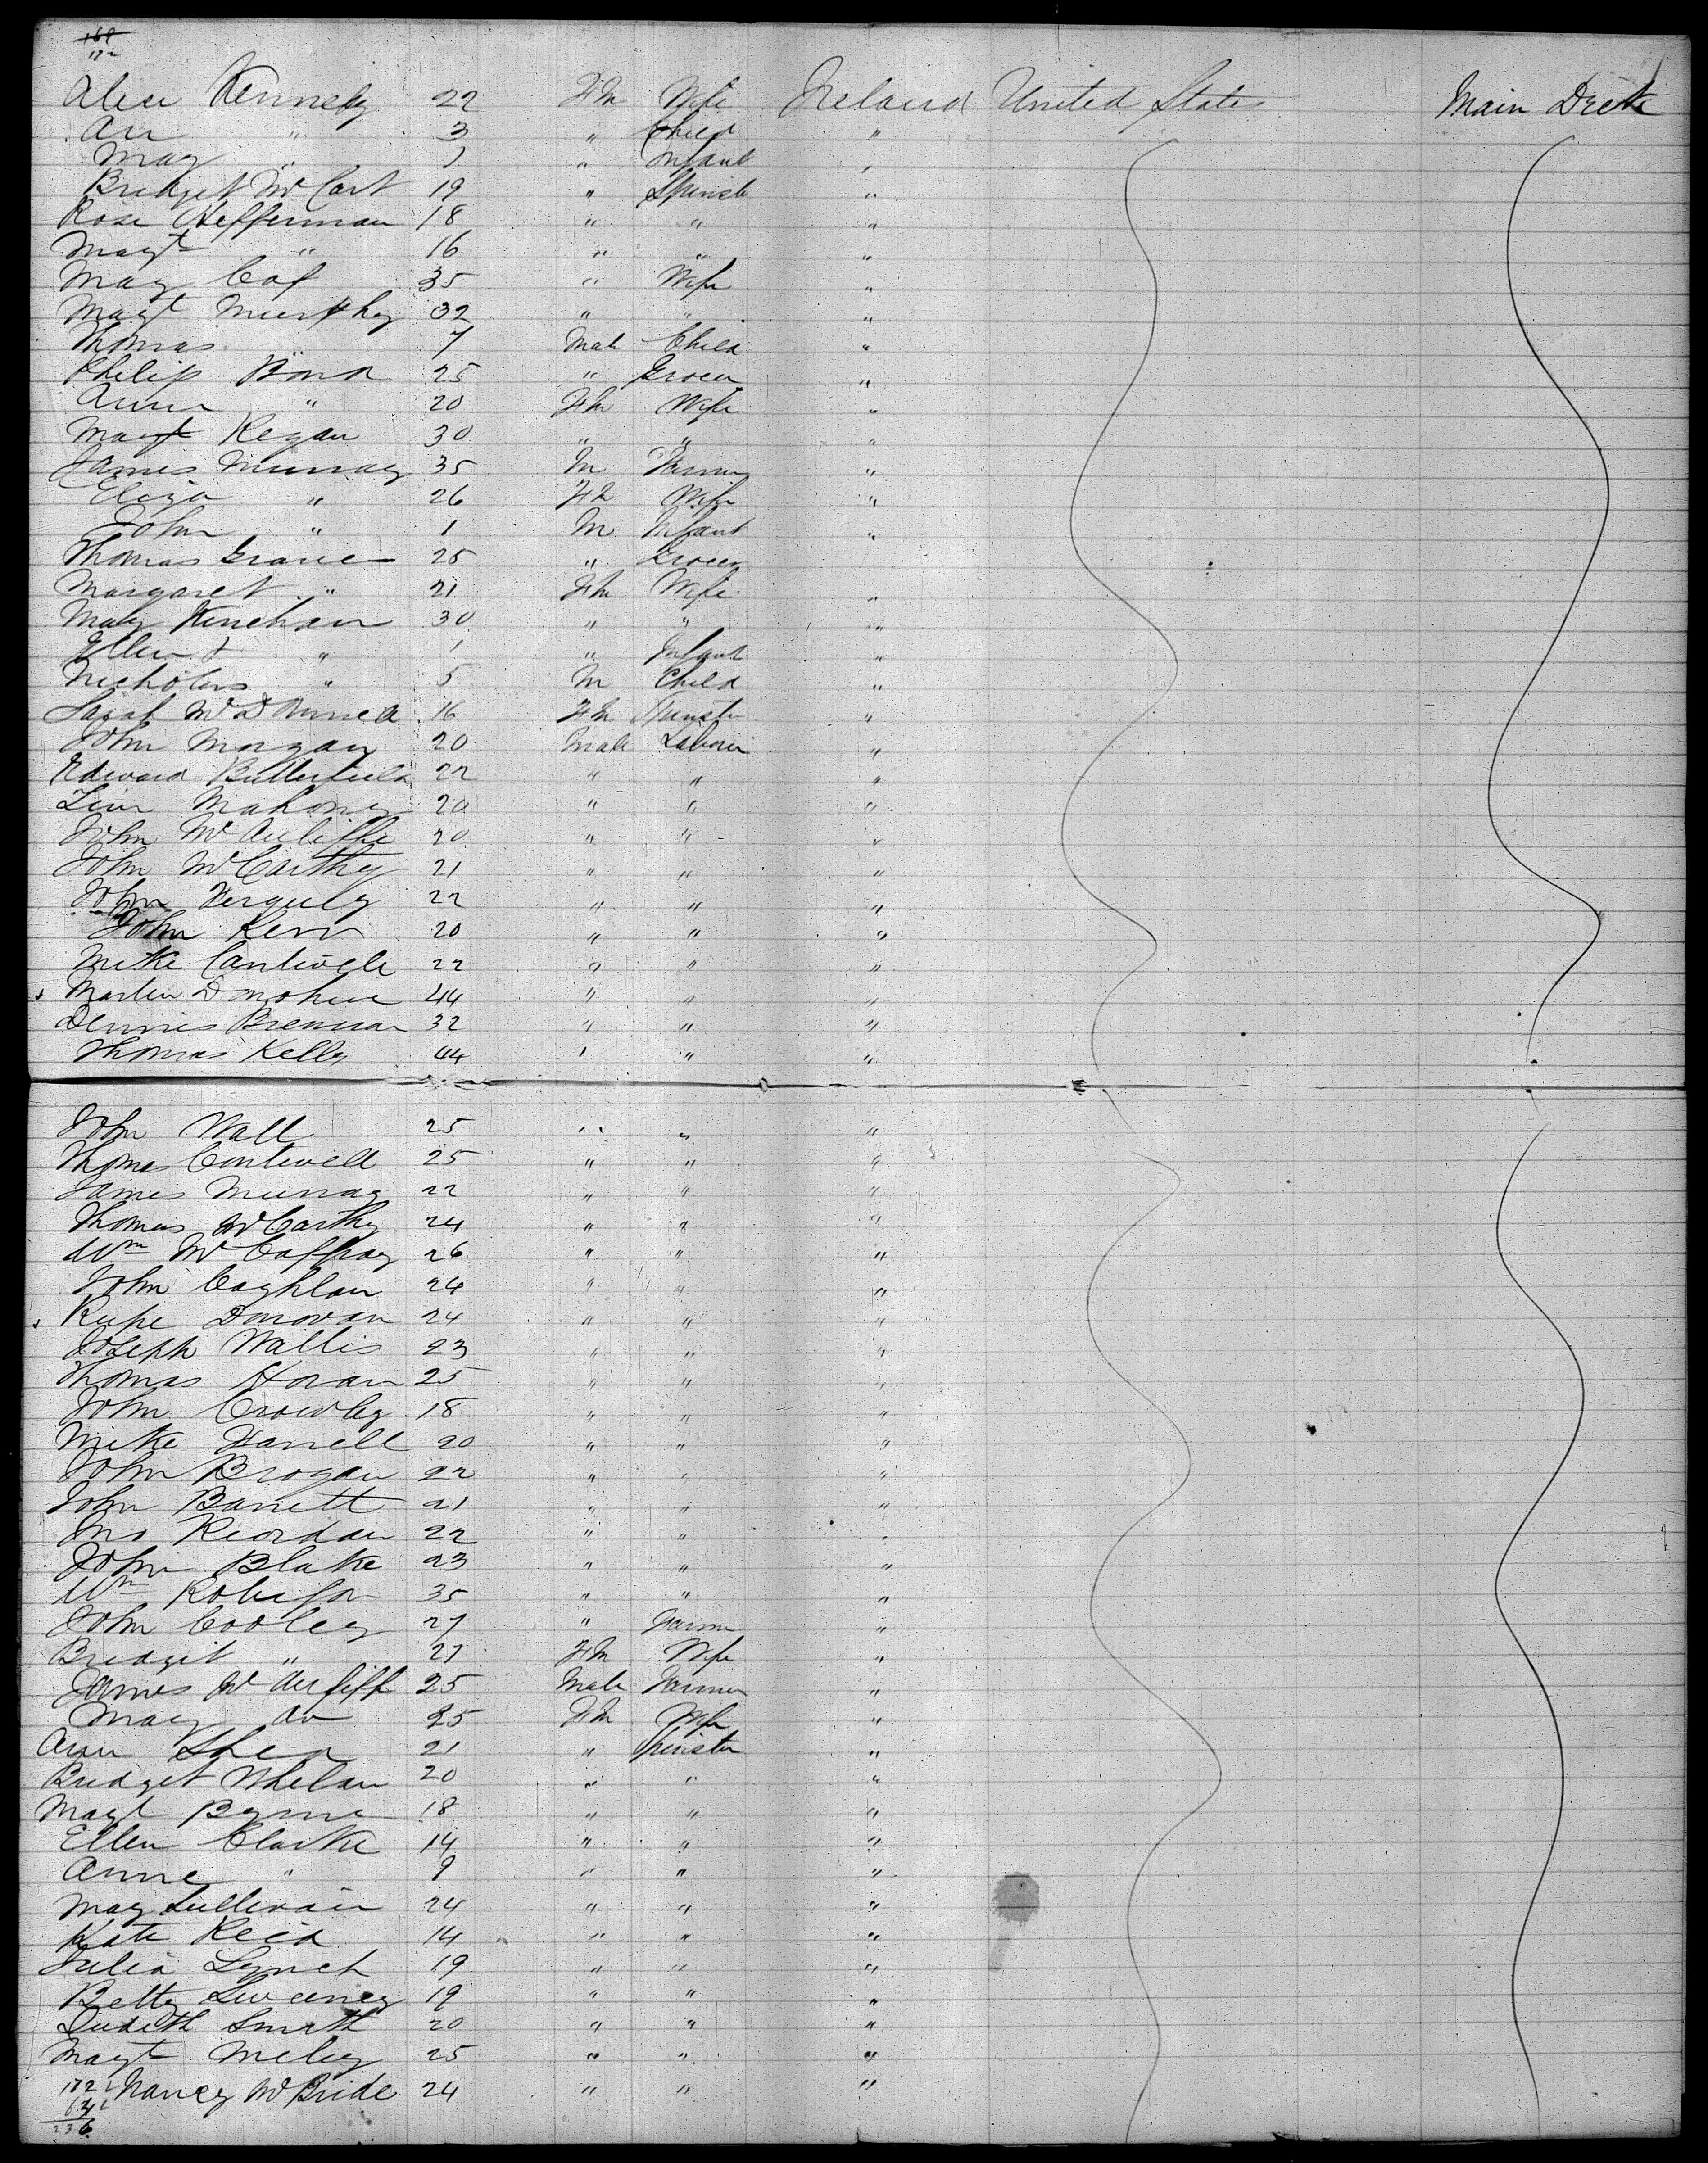 168
172
Alice Kennedy 22 Fm Wife Ireland United States Main Deck
Ann " 3 " Child "
May " 1 " Infant "
Bridget McCart 19 " Spinst "
Rose Hefferman 18 " " "
Magt " 16 " " "
May Cof 35 " Wife "
Magt Murphy 32 " " "
Thomas " 7 Male Child "
Philip Bond 25 " Grocer "
Anne " 20 Fm Wife "
Magt Regan 30 " " "
James Murray 35 M Farmer "
Eliza " 26 Fm Wife "
John " 1 M Infant "
Thomas Grace 25 " Grocer "
Margaret " 21 Fm Wife "
Mary Kinchan 30 " " "
Ellen " 1 " Infant "
Nicholas " 5 M Child "
Sarah McDonnell 16 Fm Spinster "
John Morgan 20 Male Laborer "
Edward Butterfield 22 " " "
Tim Mahony 20 " " "
John McAuliffe 20 " " "
John McCarthy 21 " " "
John Herguly 22 " " "
John Kerr 20 " " "
Mike Cantwell 22 " " "
Martin Donohue 44 " " "
Dennis Brennan 32 " " "
Thomas Kelly 44 " " "
John Wall 25 " " "
Thomas Cantwell 25 " " "
James Murray 22 " " "
Thomas McCarthy 24 " " "
Wm McCaffray 26 " " "
John Coghlan 24 " " "
Donovan 24 " " "
Joseph Wallis 23 " " "
Thomas Horan 25 " " "
John Crowley 18 " " "
Mike Farrell 20 " " "
John Brogan 22 " " "
John Barrett 21 " " "
Jno Riordan 22 " " "
John Blake 23 " " "
Wm Robinson 35 " " "
John Cooley 27 " Farmer "
Bridgit " 27 Fm Wife "
James McAuliff 25 Male Farmer "
Mary do 25 Fm Wife "
Ann Shea 21 " Spinster "
Bridget Whelan 20 " " "
Magt Byrne 18 " " "
Ellen Clarke 14 " " "
Anne " 9 " " "
May Sullivan 24 " " "
Kate Reid 14 " " "
Julia Lynch 19 " " "
Betty Sweeney 19 " " "
Judith Smith 20 " " "
Magt Meley 25 " " "
172 Nancy McBride 24 " " "
64
236